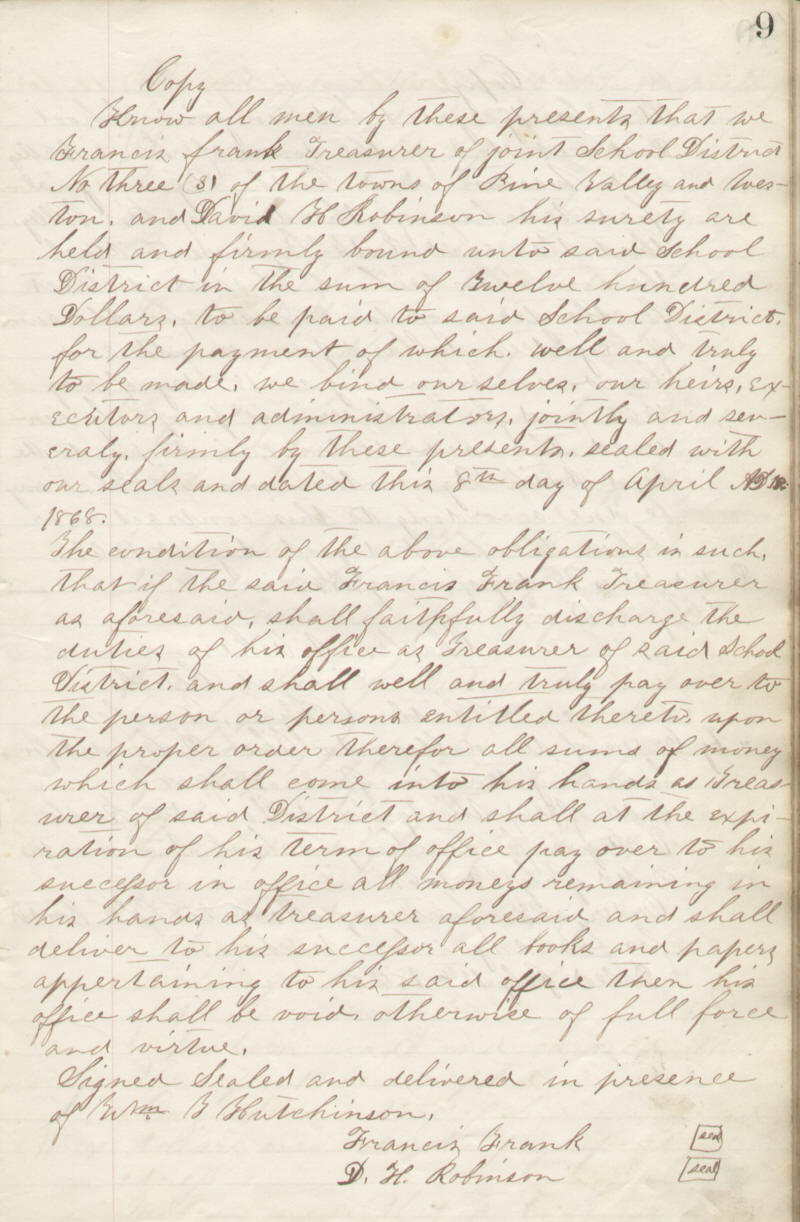 9
Copy
Know all men by these presents that we
Francis frank Treasurer of joint School District
No three (3) of the towns of Pine Valley and Wes-
ton. and David H Robinson his surety are
held and firmly bound unto said School
District in the sum of Twelve hundred
Dollars, to be paid to said School District,
for the payment of which. well and truly
to be made, we bind ourselves, our heirs, ex-
ecutors and administrators, jointly and sev-
eraly, firmly by these presents. sealed with
our seals and dated this 8th day of April AD
1868.
The condition of the above obligations is such,
that if the said Francis Frank Treasurer
as aforesaid, shall faithfully discharge the
duties of his office as Treasurer of said School
District. and shall well and truly pay over to
the person or persons entitled thereto, upon
the proper order therefor all sums of money
which shall come into his hands as Treas-
urer of said District and shall at the expi-
ration of his term of office pay over to his
successor in office all moneys remaining in
his hands as treasurer aforesaid and shall
deliver to his successor all books and papers
appertaining to his said office then his
office shall be void, otherwise of full force
and virtue.
Signed Sealed and delivered in presence
of Wm F Hutchinson.
Francis Frank seal
D. H. Robinson seal